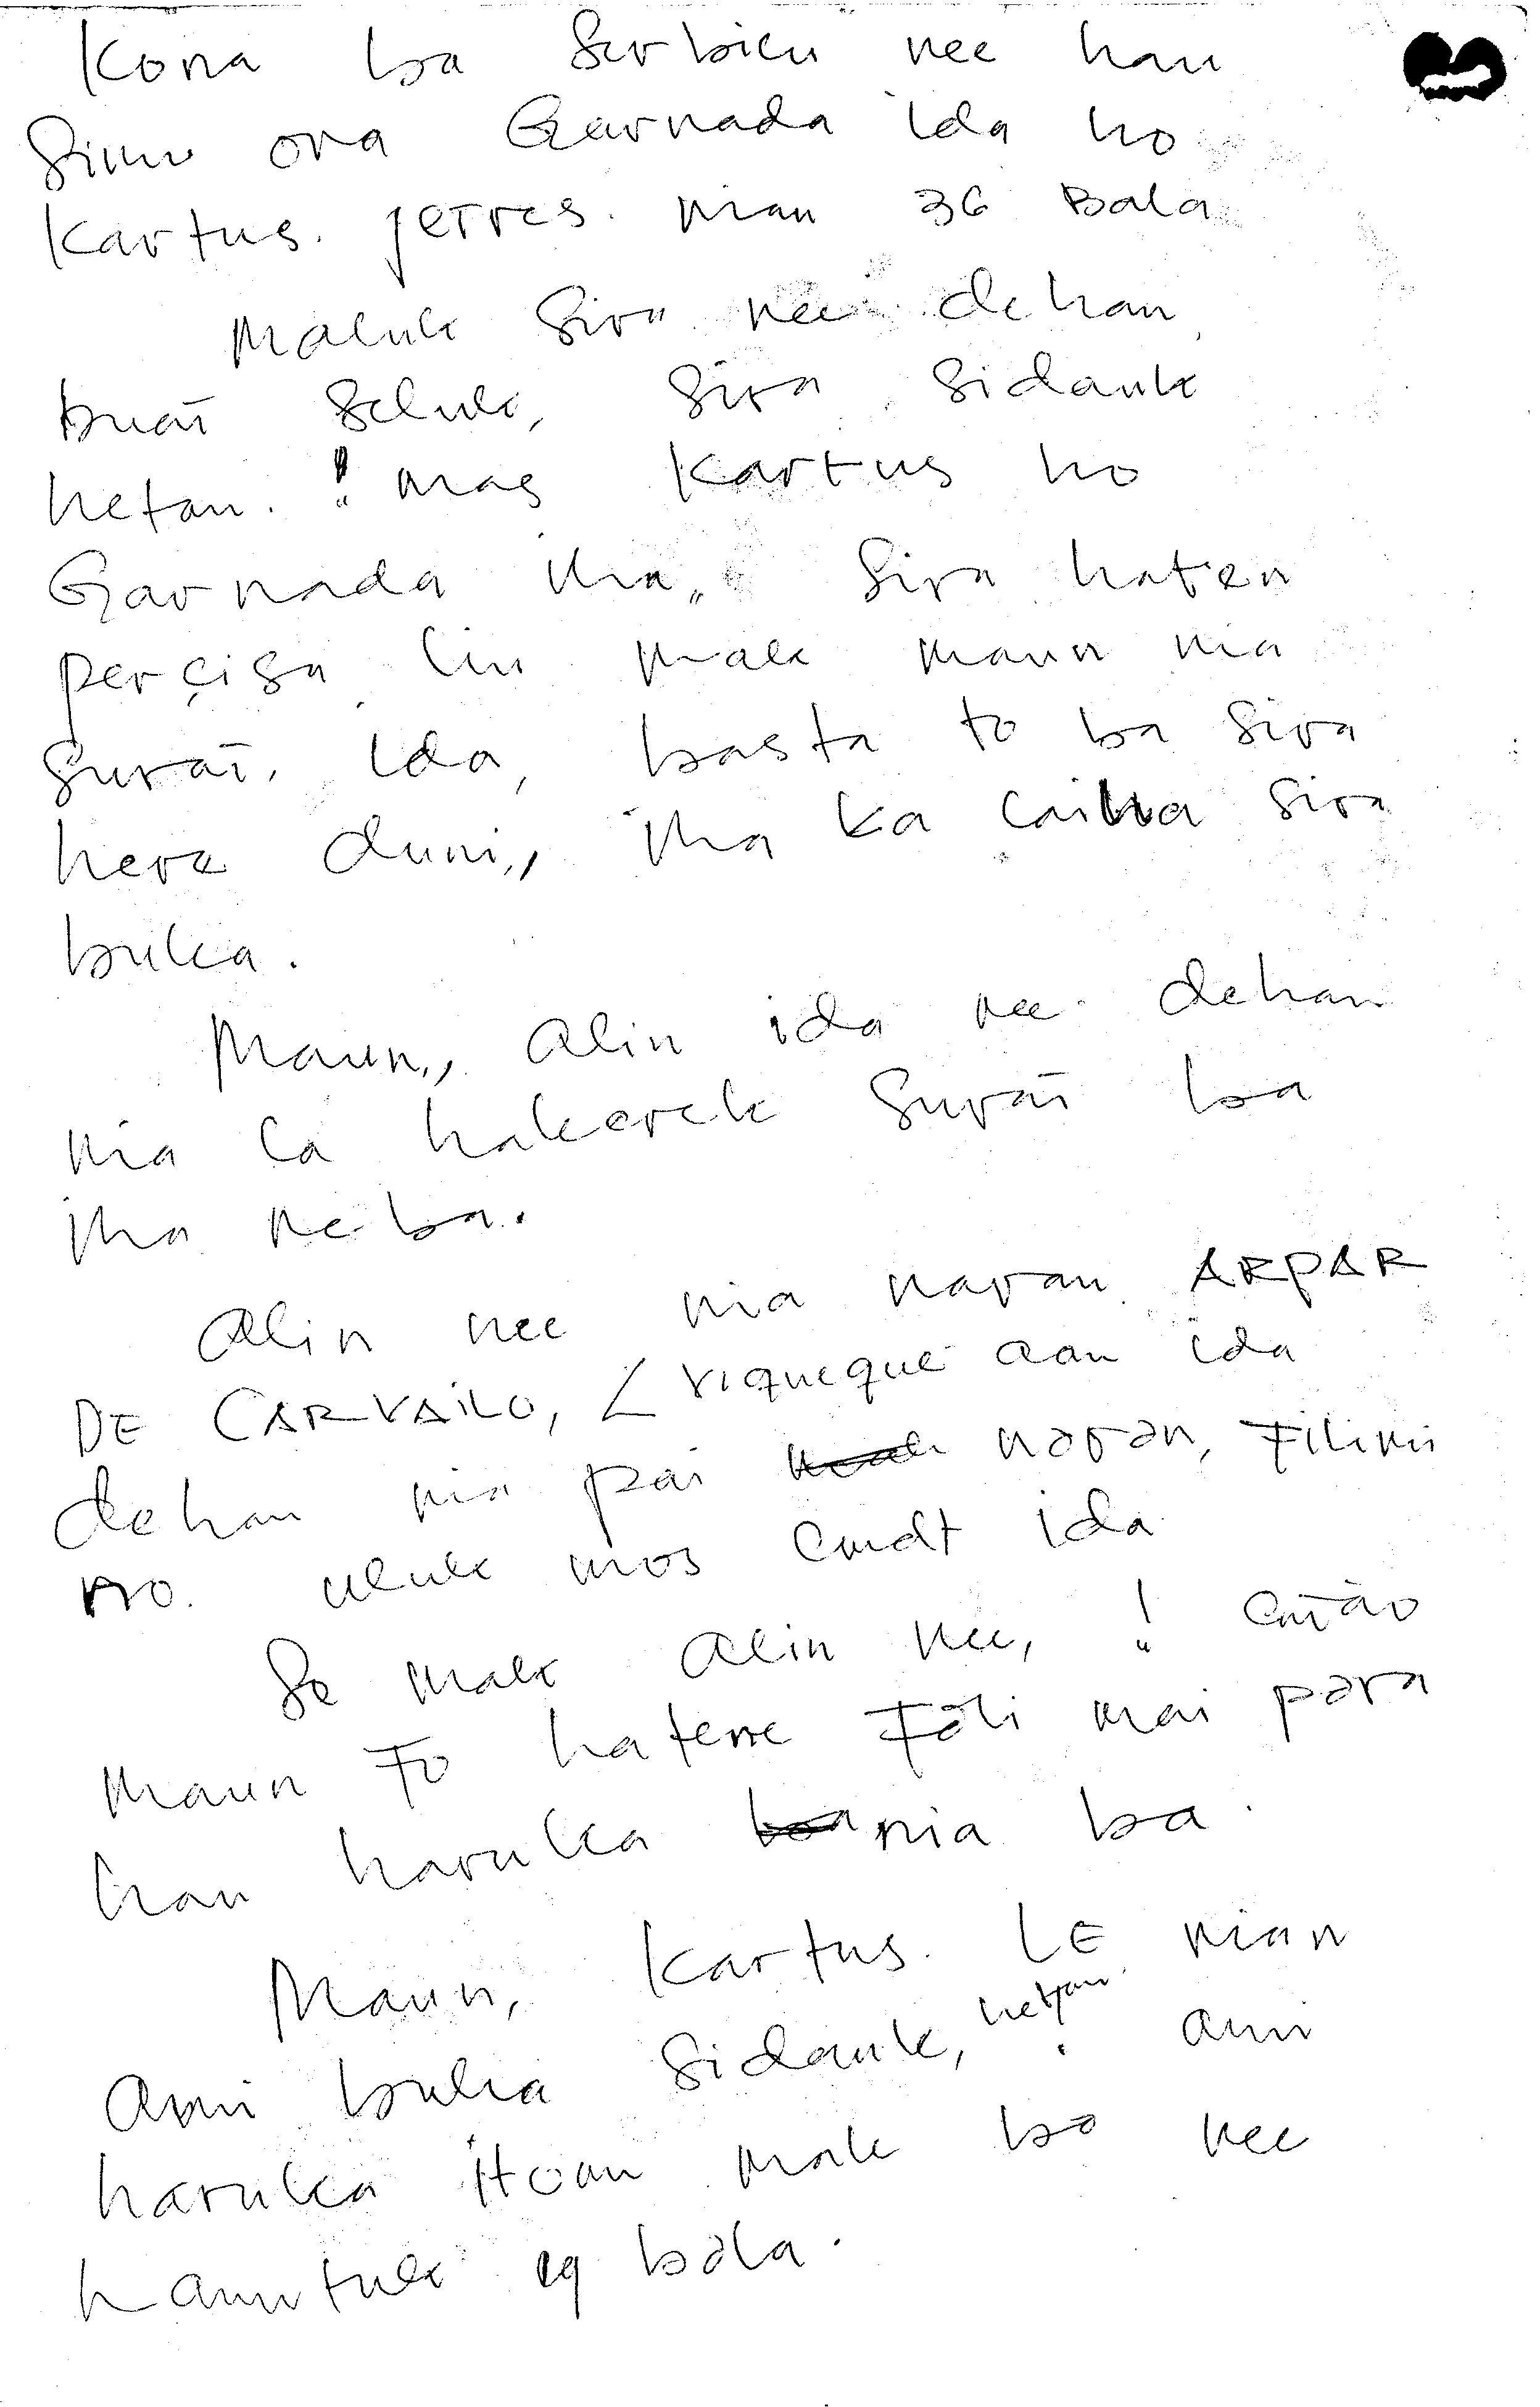 Kona ba serbicu nee hau
simu ona Garnada ida ho
Kartus. jetres. nian 36 Bala
Maluk sira nee dehan
buat seluk, sira sidauk
hetan. ! mas Kartus ho
Garnada iha,, sira haten
perçisa liu mak maun nia
surat, ida, basta to ba sira
here duni,, iha ka laiha sira
buka.
Maun,, alin ida nee dehan
nia la hakerek surat ba
iha neba.
Alin nee nia naran ARPAR
DE CARVAILO, L viqueque oan ida
dehan nia pai naran, Filimi
no. uluk mos Cmdt ida
Se mak alin nee, ! então
maun Fo hatene Fali mai para
hau haruka nia ba.
Maun, Kartus. LE nian
ami buka sidauk, hetan. ami
haruka itoan mak bo nee
hamutuk 29 bala.